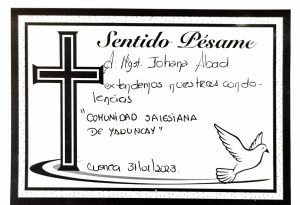 Sentido Pésame
A: Mgst. Johana Abad.
extendemos nuestras condo-
lencias
"COMUNIDAD SALESIANA
DE YADUNCAY"
Cuenca 31/01/2023.